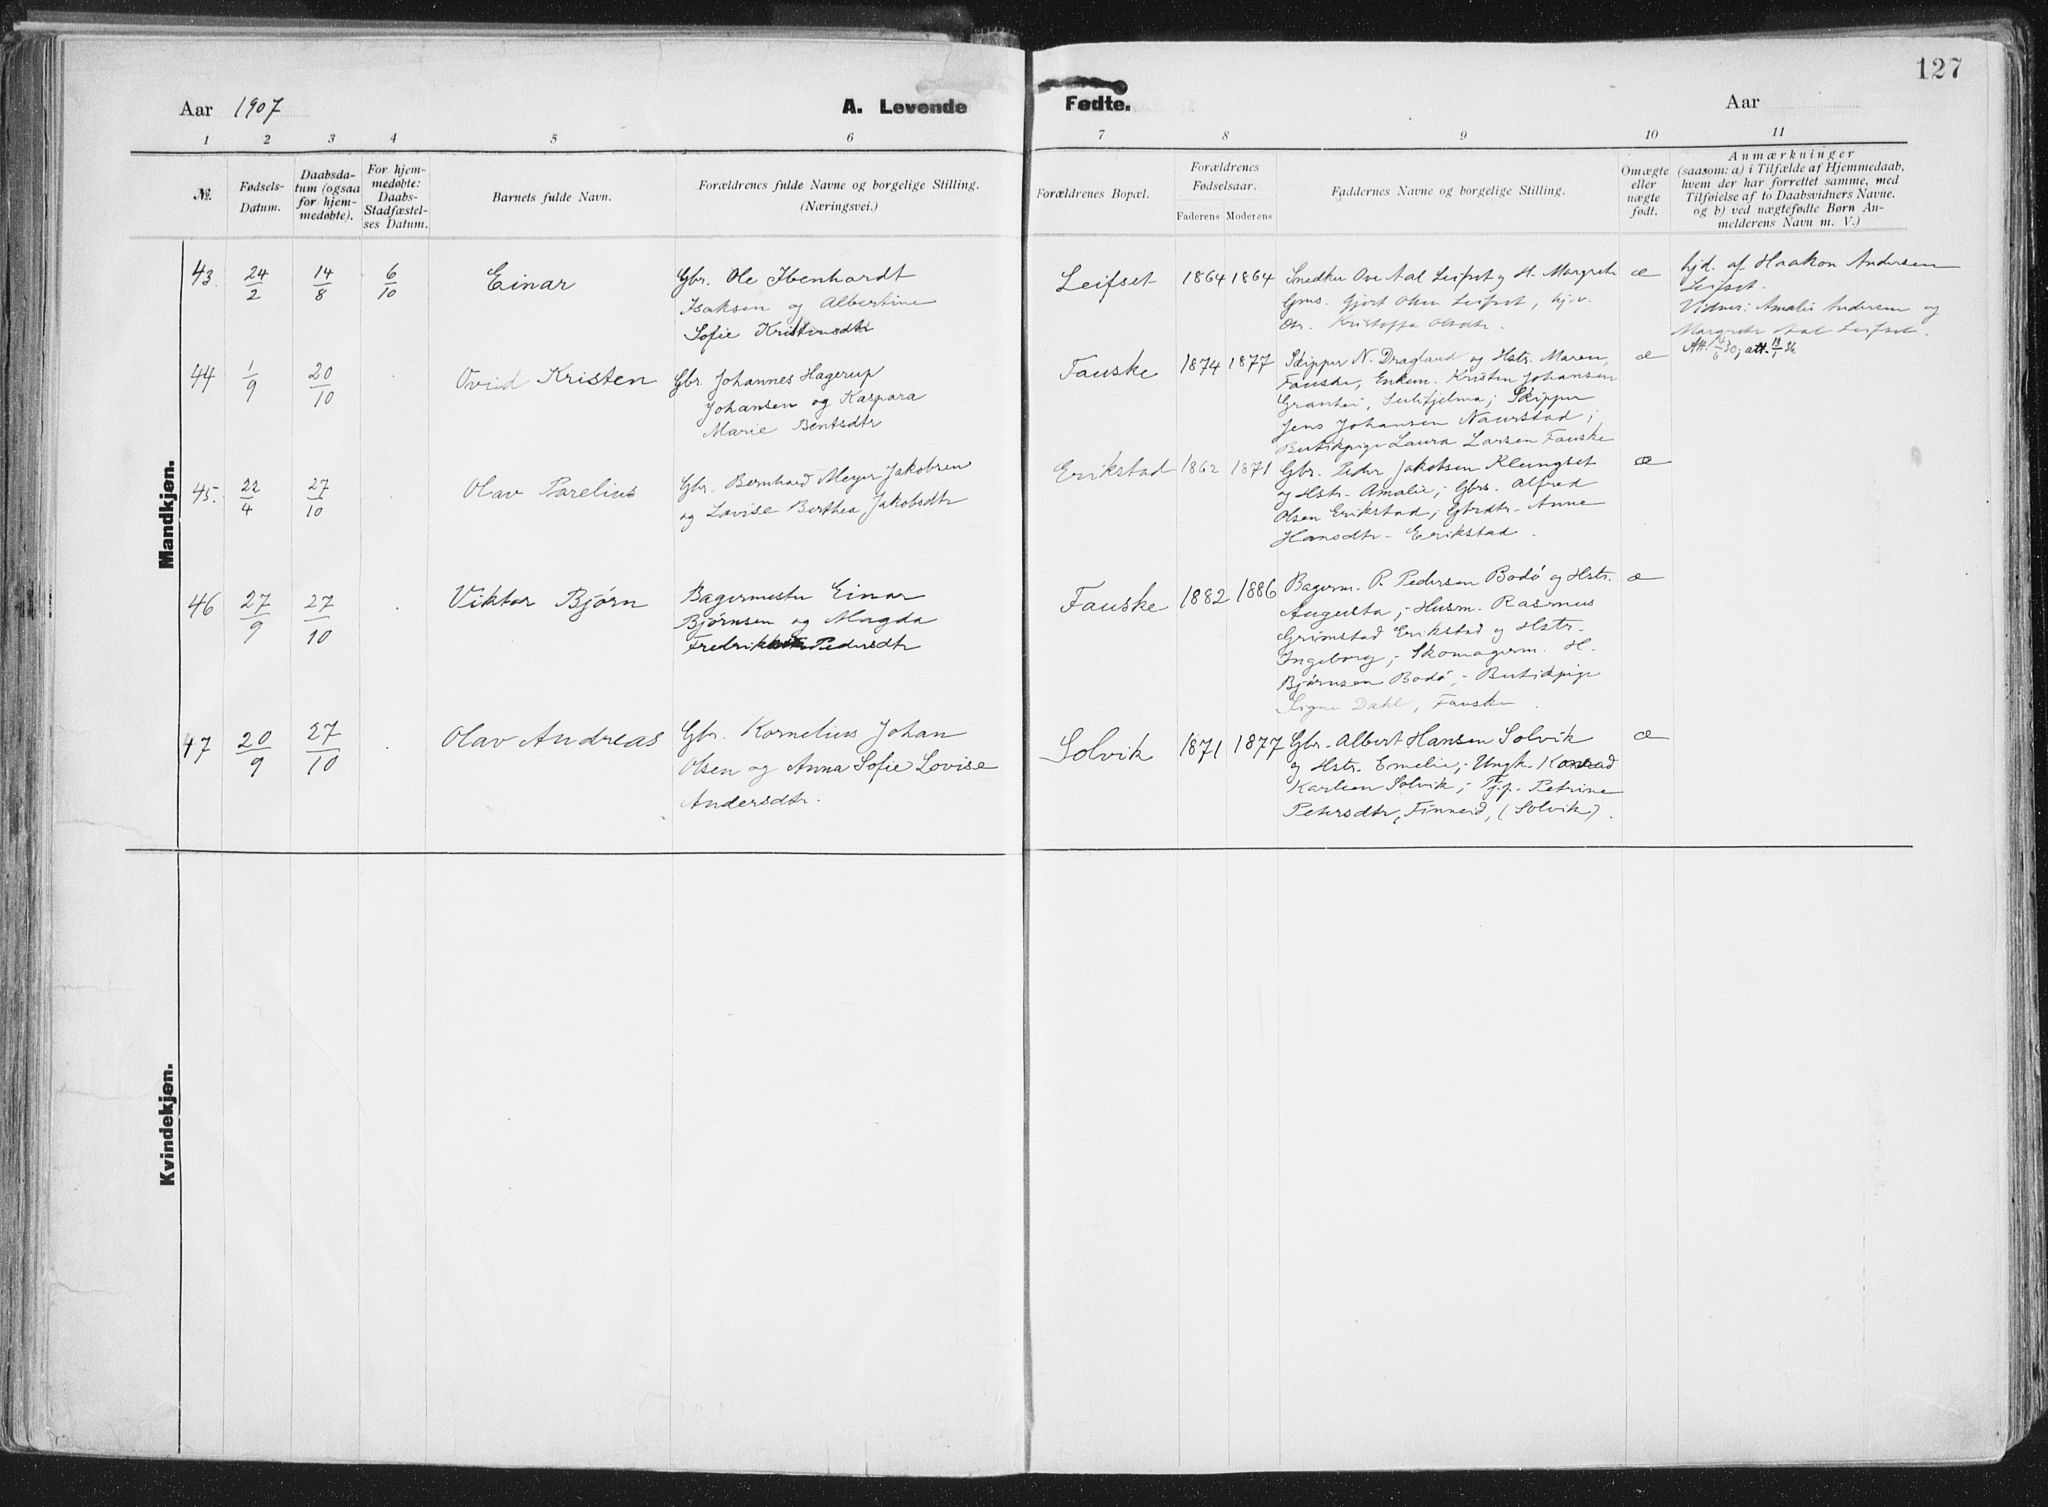 127
Aar 1907
A. Levende
Fødte.
Aar
1 2 3 4 5 6 7 8 9 10 11
№.
Fødsels-
Datum.
Daabsda-
tum (ogsaa
for hjem-
medøbte).
For hjem-
medøbte:
Daabs-
Stadfæstel-
ses Datum.
Barnets fulde Navn.
Forældrenes fulde Navne og borgelige Stilling.
(Næringsvei.)
Forældrenes Bopæl.
Forældrenes
Fødselsaar.
Faderens Moderens
Faddernes Navne og borgelige Stilling.
Omægte
eller
nægte
født.
Anmærkninger
(saasom: a) i Tilfælde af Hjemmedaab,
hvem der har forrettet samme, med
Tilføielse af to Daabsvidners Navne.
og b) ved nægtefødte Børn An-
melderens Navn m. V.)
Mandkjøn.
43. 24/2 14/8 6/10 Einar
Gbr. Ole Ibenhardt
Isaksen og Albertine
Sofie Kristensdtr
Leifset 1864 1864
Snedker Ove Aal Leifset og H. Margrete
Gms. Gjert Olsen Leifset, hj.v.
Ole. Kristoffa Olsdtr.
æ
hjd. af Haakon Andersen
Leifset.
Vidner: Amalie Andersen og
Margrete Aal Leifset.
Att. 14/6 30, att. 13/1 36.
44 1/9 20/10 Ovid Kristen
Gbr. Johannes Hagerup
Johansen og Kaspara
Marie Bentsdtr
Fauske 1874 1877
Skipper N. Dragland og Hstr. Maren,
Fauske, Enkem. Kristen Johansen
Granhei, Sulitjelma; Skipper
Jens Johansen Naurstad;
Butikpige Laura Larsen Fauske
æ
45. 22/4 27/10 Olav Parelius
Gbr. Bernhard Meyer Jakobsen
og Lovise Berthea Jakobsdtr
Erikstad 1862 1871
Gbr. Peder Jakobsen Klungset
og Hstr. Amalie; Gbrs. Alfred
Olsen Erikstad; Gbrdtr. Anne
Hansdtr. Erikstad.
æ
46 27/9 27/10 Viktor Bjørn
Bagermester Einar
Bjørnsen og Magda
Pedersdtr
Fauske 1882 1886
Bagerm. P. Pedersen Bodø og Hstr.
Augusta; Husm. Rasmus
Grimstad Erikstad og Hstr.
Ingeborg; Skomagerm. H.
Bjørnsen Bodø; Butikpige
Signe Dahl, Fauske.
æ
47 20/9 27/10 Olav Andreas
Gbr. Kornelius Johan
Olsen og Anna Sofie Lovise
Andersdtr.
Solvik 1871 1877
Gbr. Albert Hansen Solvik
og Hstr. Emelie; Ungk. Konrad
Karlsen Solvik; Tj.p. Petrine
Petersdtr, Finneid, (Solvik).
æ
Kvindekjøn.